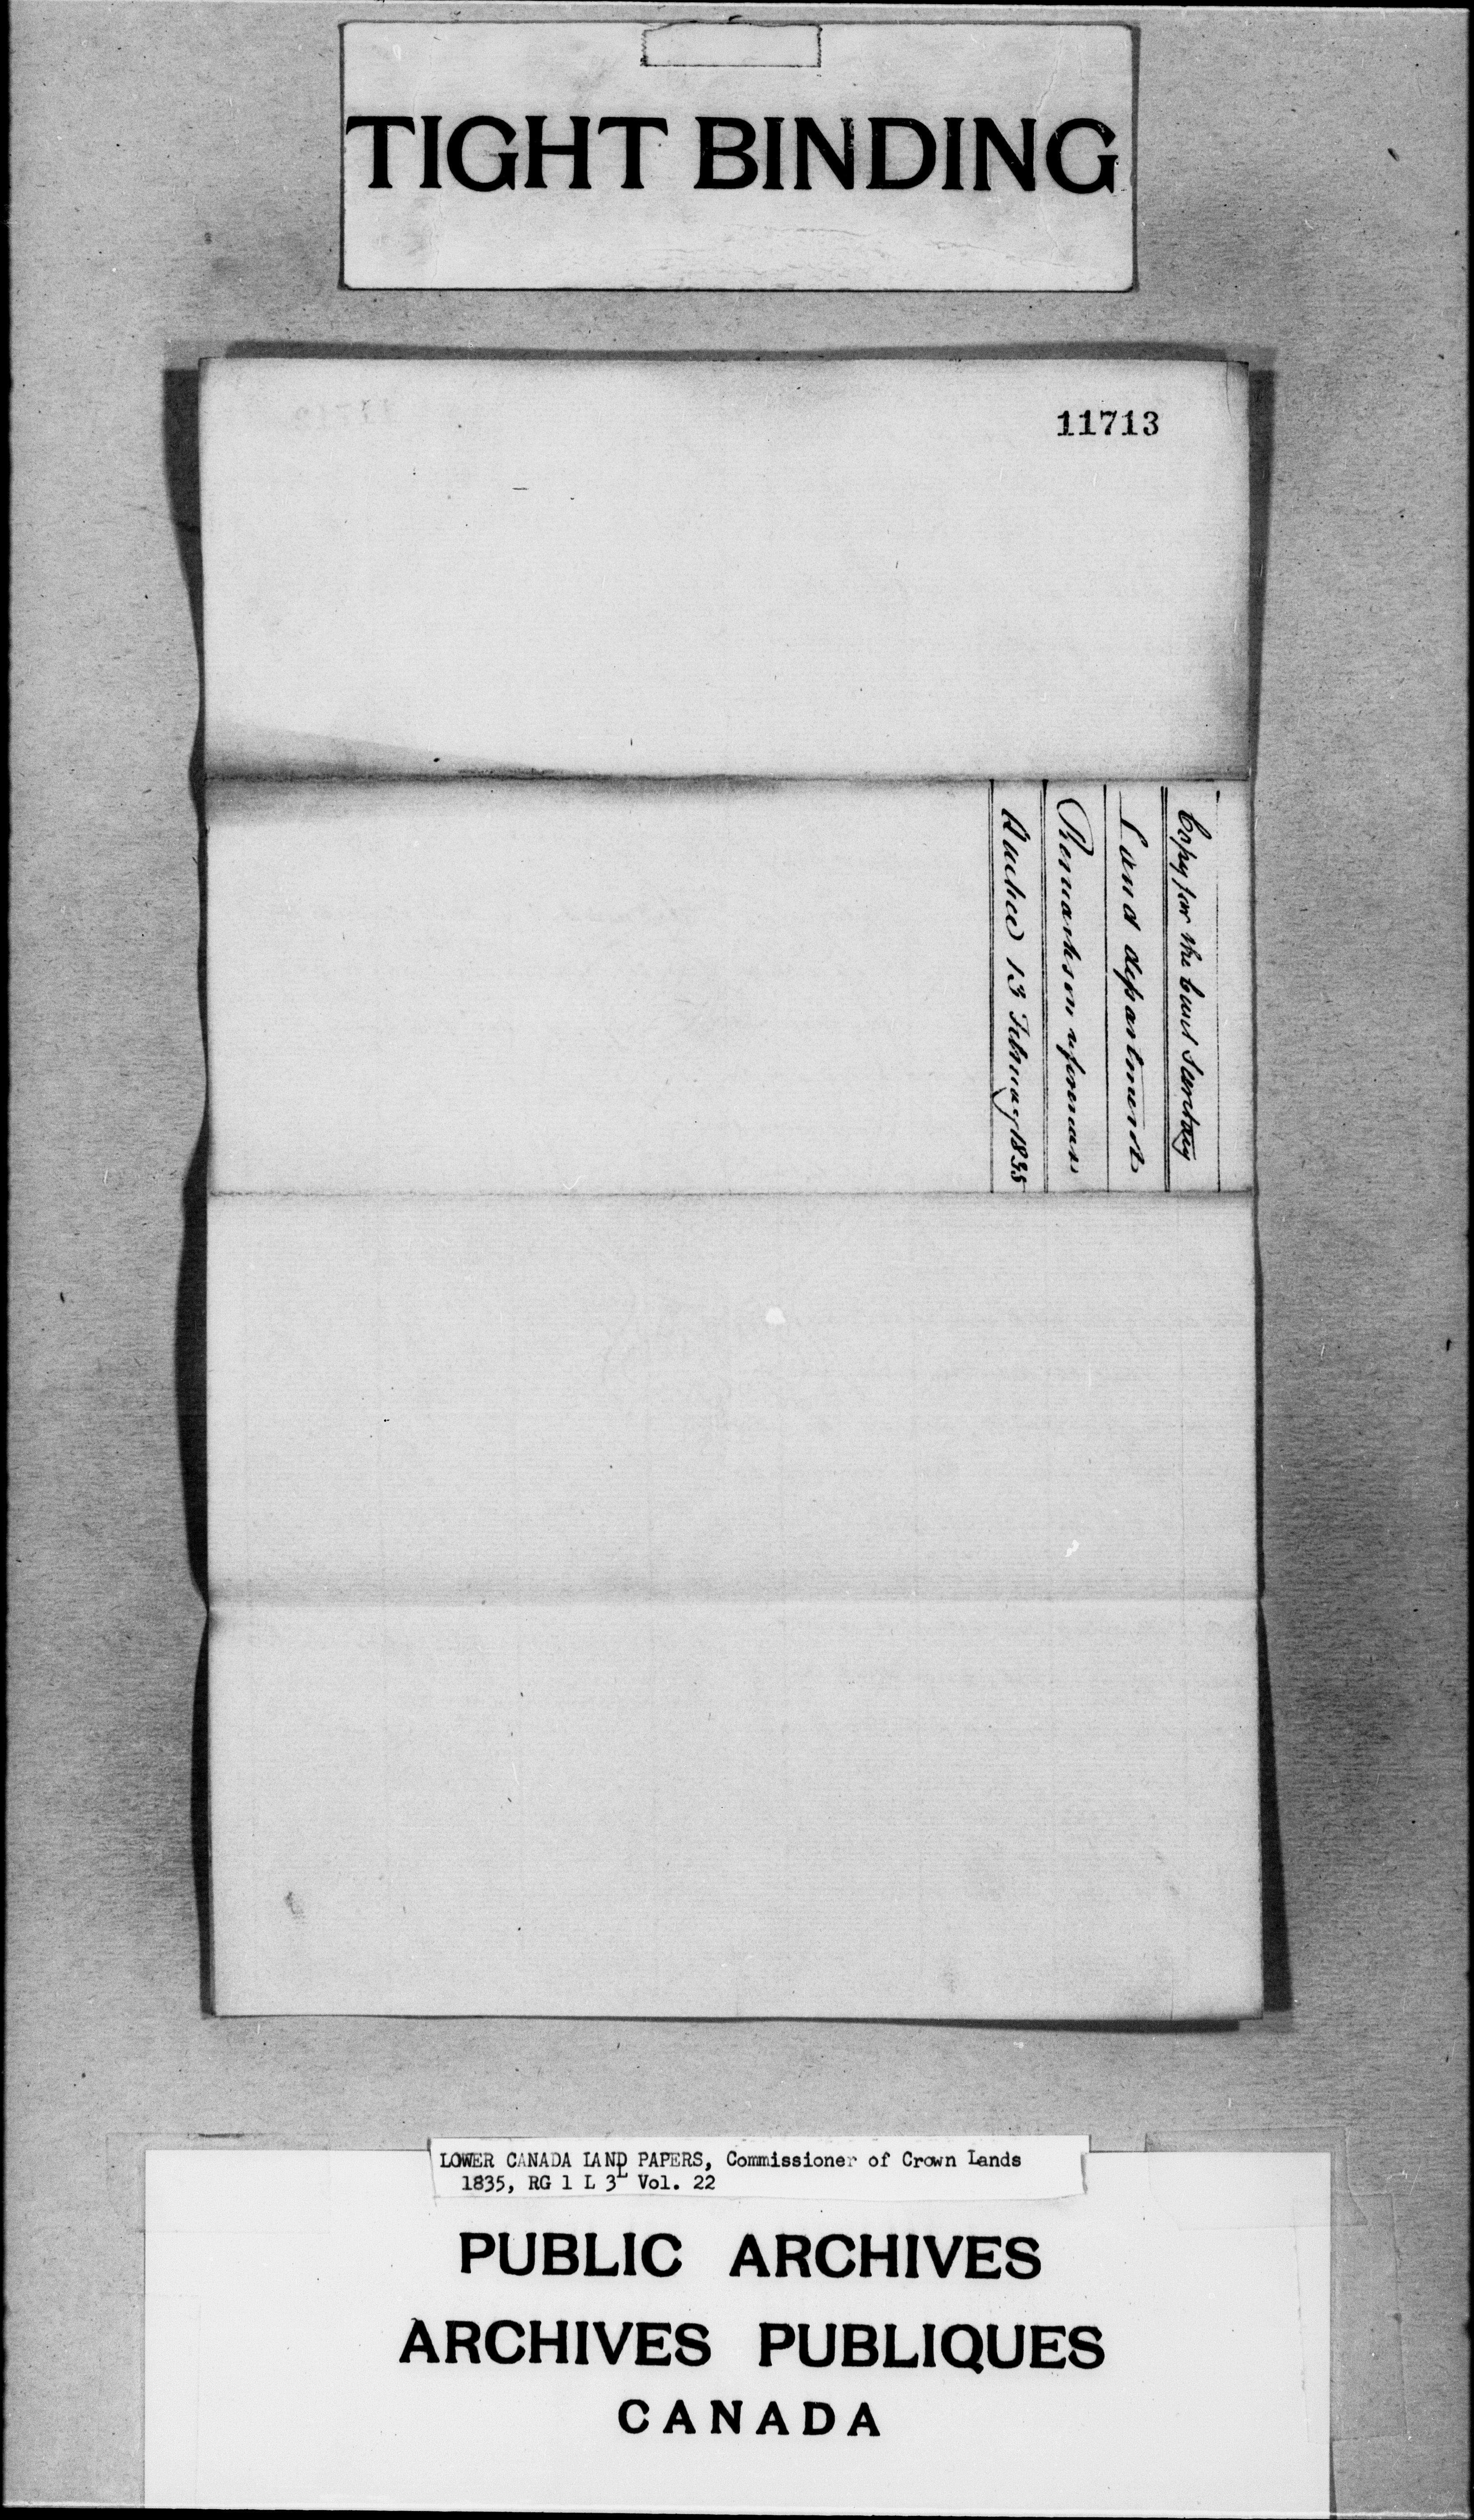 TIGHT BINDING
11713
Copy for the Civil Secretary
Land department
Remarks on references
Quebec 13 February 1835
LOWER CANADA LAND PAPERS, Commissioner of Crown Lands
1835, RG 1 L 3L Vol. 22
PUBLIC ARCHIVES
ARCHIVES PUBLIQUES
CANADA